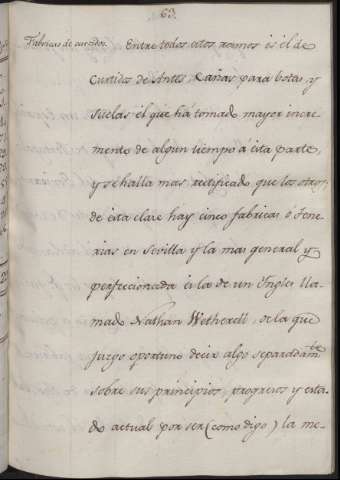 63.
Fabricas de curtidos. Entre todos estos ramos es él de
Curtidos de Antes, Rañas para botas, y
Suelas él que há tomado mayor incre-
mento de algun tiempo á esta parte,
y se halla mas rectificado que los otros;
de esta clase hay cinco fabricas ó Tene-
rias en Sevilla y la mas general y
perfeccionada es la de un Ingles lla-
mado Nathan Wetherell, de la que
juzgo oportuno decir algo separadam.te
sobre sus principios, progresos y esta-
do actual por ser (como digo) la me-